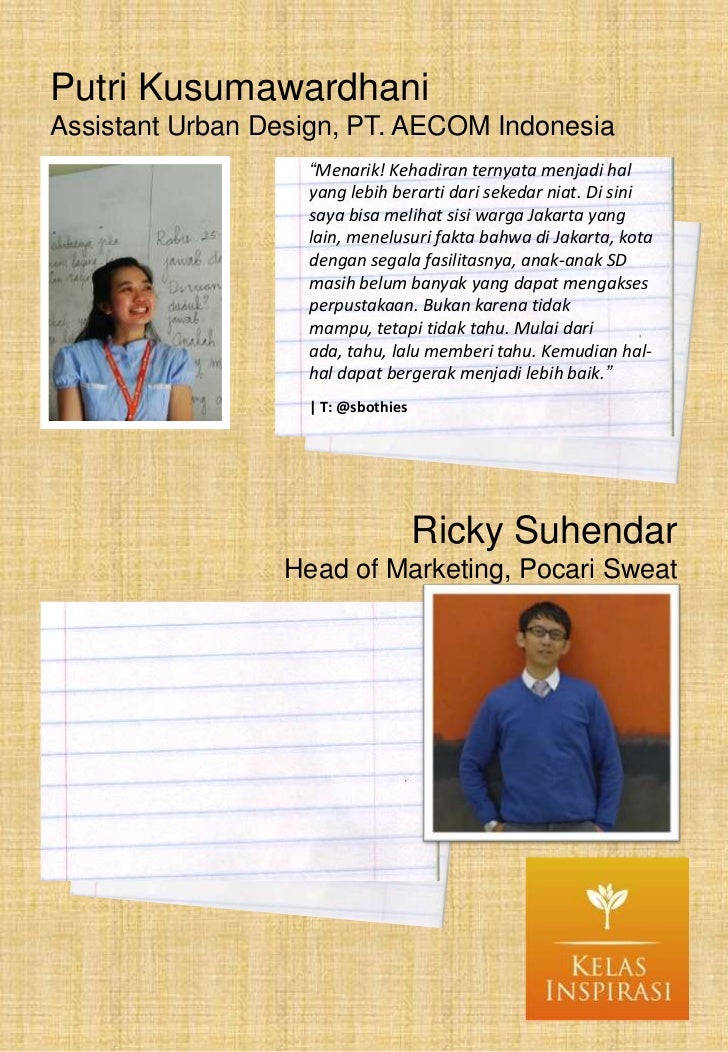 Putri Kusumawardhani
Assistant Urban Design, PT. AECOM Indonesia
“Menarik! Kehadiran ternyata menjadi hal
yang lebih berarti dari sekedar niat. Di sini
saya bisa melihat sisi warga Jakarta yang
lain, menelusuri fakta bahwa di Jakarta, kota
dengan segala fasilitasnya, anak-anak SD
masih belum banyak yang dapat mengakses
perpustakaan. Bukan karena tidak
mampu, tetapi tidak tahu. Mulai dari
ada, tahu, lalu memberi tahu. Kemudian hal-
hal dapat bergerak menjadi lebih baik.”
| T: @sbothies
Rabu 25
jawab
duduk?
jawab
Ricky Suhendar
Head of Marketing, Pocari Sweat
KELAS
INSPIRASI